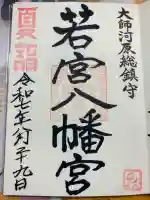 大師河原総鎮守
若宮八幡宮
夏詣
令和七年 月 九日